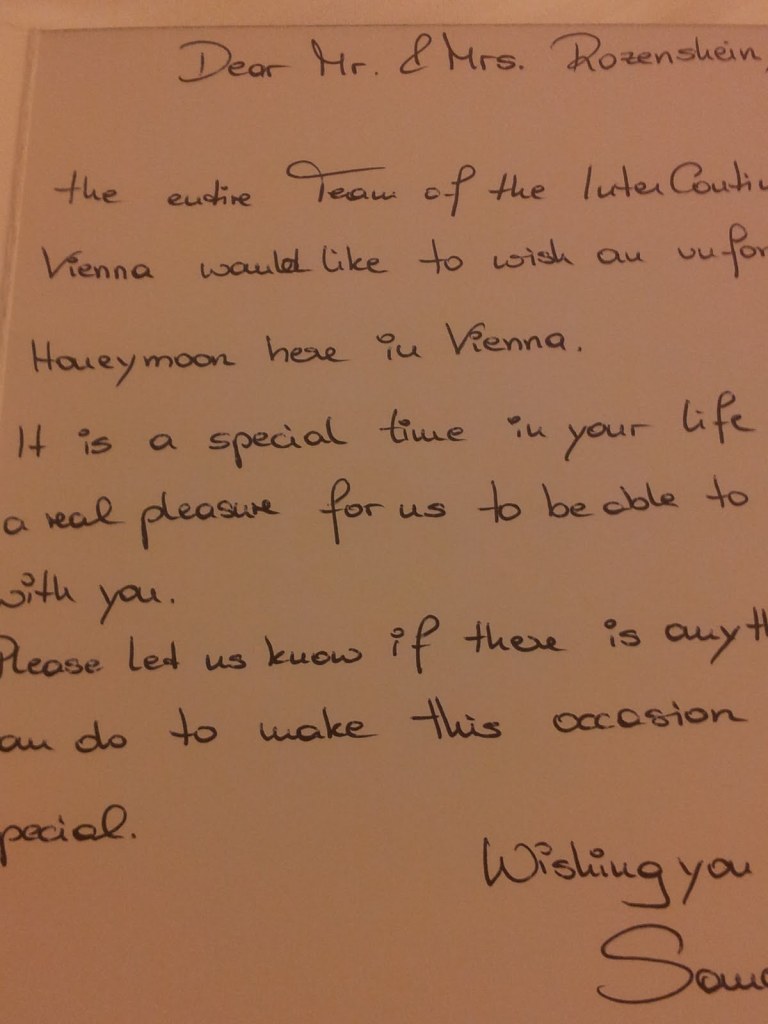 Dear Mr. & Mrs. Rozenshein,
the entire Team of the InterConti
Vienna would like to wish an unfor
Honeymoon here in Vienna.
It is a special time in your life
a real pleasure for us to be able to
with you.
Please let us know if there is anyth
an do to make this occasion
pecial.
Wishing you